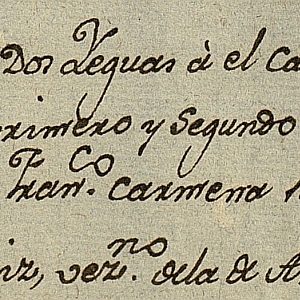 Dos Yeguas à el Ca
primero y Segundo
Fran.co Carmena
iz, vez.no dela de A